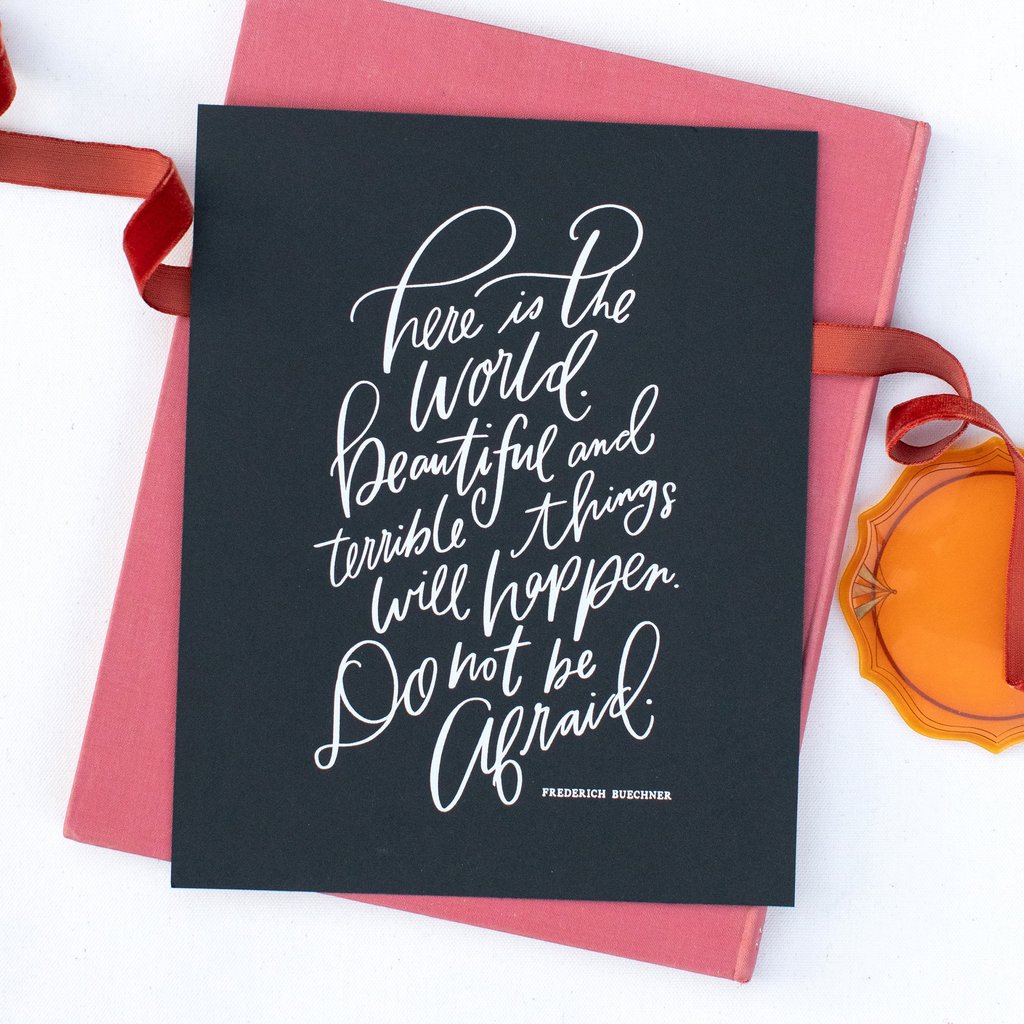 here is the
world.
beautiful and
terrible things
will happen.
Do not be
Afraid.
FREDERICH BUECHNER